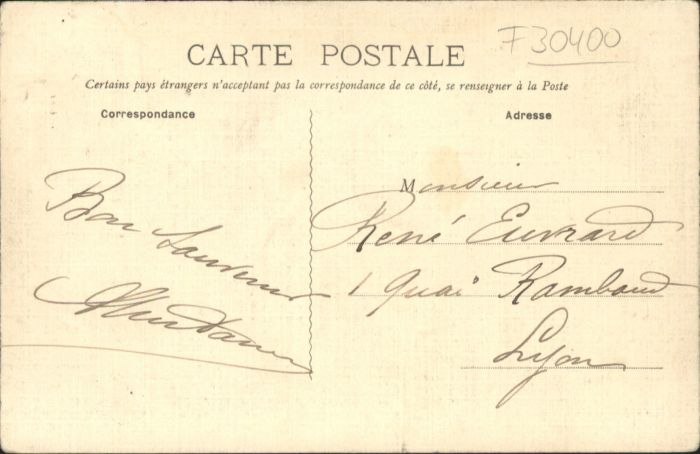 F30400
CARTE POSTALE
Certains pays étrangers n'acceptant pas la correspondance de ce côté, se renseigner à la Poste
Correspondance
Adresse
Bon Souvenir
Monsieur
René Euvrard
1 Quai Rambaud
Lyon